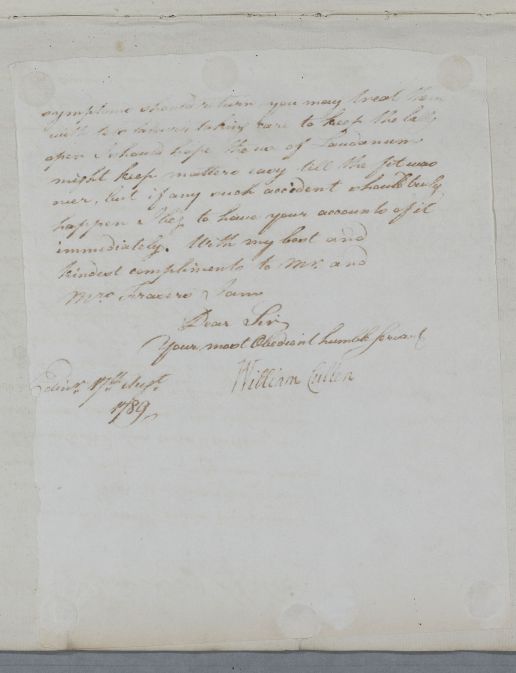 symptoms should return you may treat them
with taking care to keep the belly
open I should hope the use of Laudanum
might keep matters easy till the fit was
over, but if any such accident should truly
happen I beg to have your accounts of it
immediately. With my best and
kindest compliments to Mr. and
Mrs Frasers I am
Dear Sir
Your most Obedient humble Servant
William Cullen
Edinr. 17th Augt.
1789